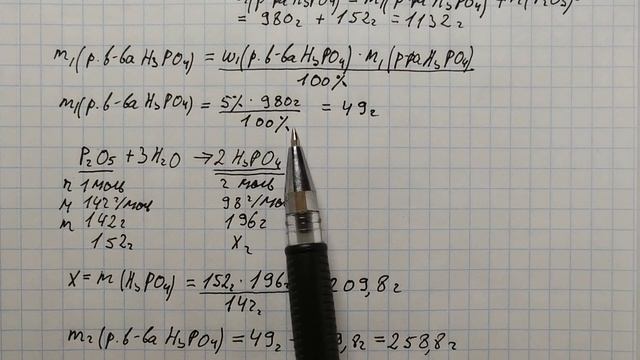 = 980г + 152г = 1132г
m₁(р.в-ва H₃PO₄) = ω₁(р.в-ва H₃PO₄) · m₁(р-ра H₃PO₄)
100%
m₁(р.в-ва H₃PO₄) = 5% · 980г = 49г
100%
P₂O₅ + 3H₂O → 2H₃PO₄
n 1моль 2 моль
M 142г/моль 98г/моль
m 142г 196г
152г Xг
X = m(H₃PO₄) = 152г · 196г 209,8г
142г
m₂(р.в-ва H₃PO₄) = 49г 9,8г = 258,8г